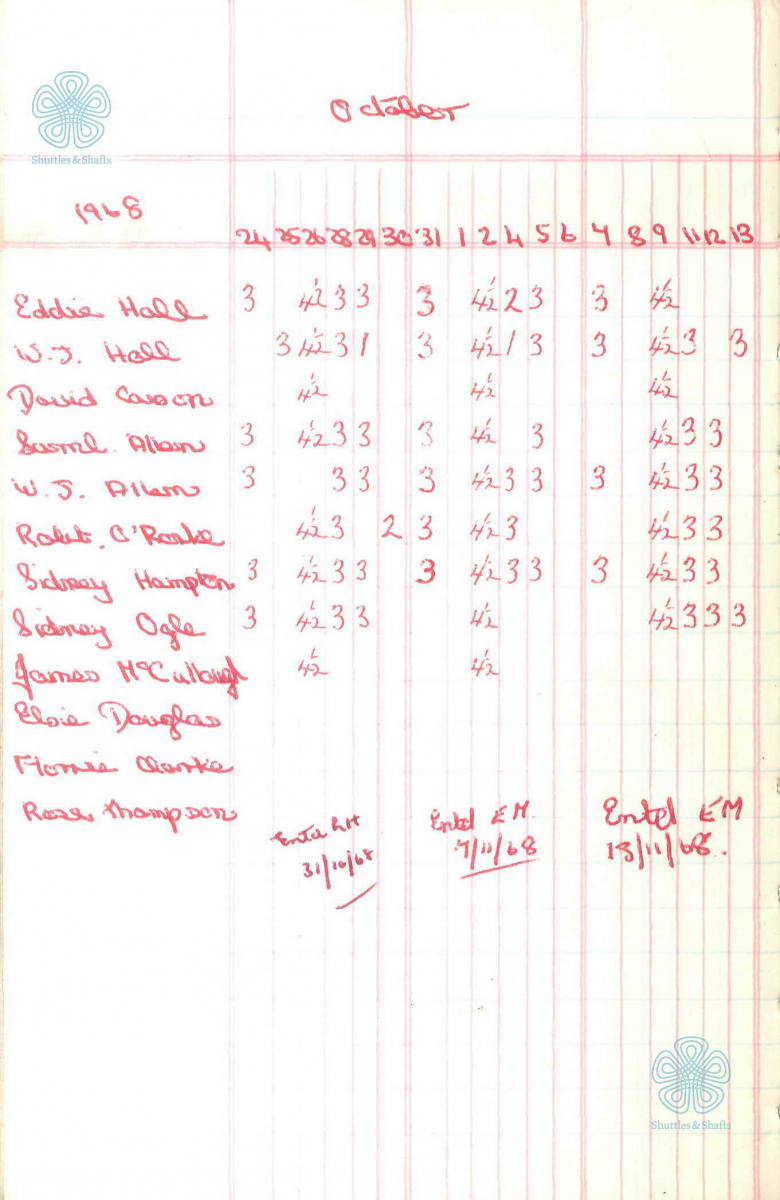 October
Shuttles & Shafts
1968
24 25 26 28 29 30 31 1 2 4 5 6 7 8 9 11 12 13
Eddie Hall 3 4½ 3 3 3 4½ 2 3 3 4½
W.J. Hall 3 4½ 3 1 3 4½ 1 3 3 4½ 3 3
David Carson 4½ 4½ 4½
Saml. Allen 3 4½ 3 3 3 4½ 3 4½ 3 3
W.J. Allen 3 3 3 3 4½ 3 3 3 4½ 3 3
Robt. O'Rorke 4½ 3 2 3 4½ 3 4½ 3 3
Sidney Hampton 3 4½ 3 3 3 4½ 3 3 3 4½ 3 3
Sidney Ogle 3 4½ 3 3 4½ 4½ 3 3 3
James McCullough 4½ 4½
Elsie Douglas
Florrie Clarke
Rose Thompson
Entd EM Entd EM
31/10/68 7/11/68 13/11/68.
Shuttles & Shafts